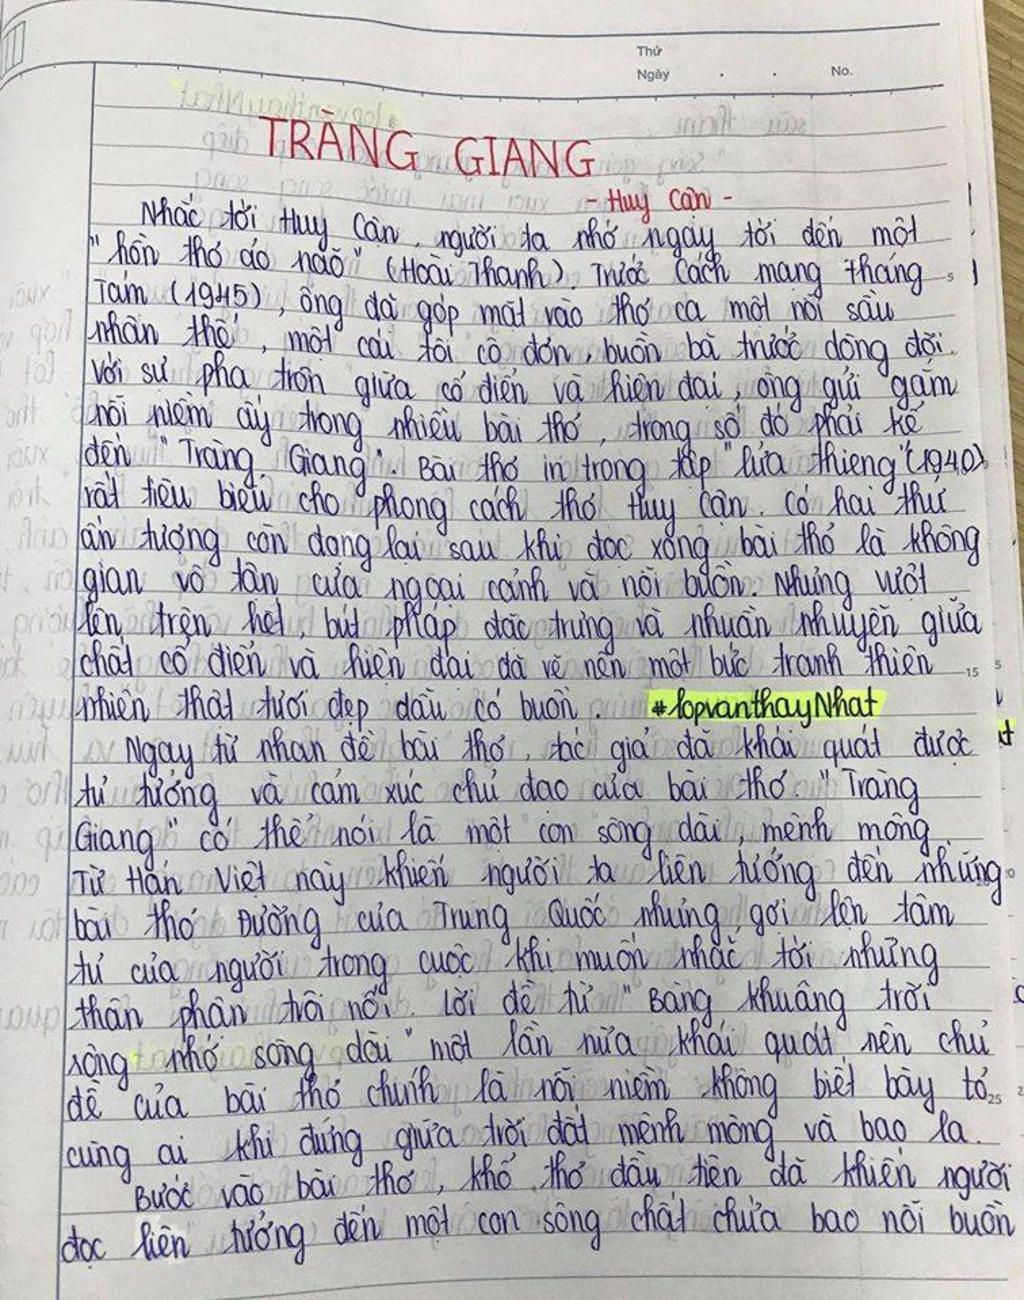 Thứ
Ngày . . No.
TRÀNG GIANG
- Huy Cận -
Nhắc tới Huy Cận, người ta nhớ ngay tới đến một
"hồn thơ ảo não" (Hoài Thanh). Trước Cách mạng tháng
Tám (1945), ông đã góp mặt vào thơ ca một nỗi sầu
nhân thế, một cái tôi cô đơn, buồn bã trước dòng đời.
Với sự pha trộn giữa cổ điển và hiện đại, ông gửi gắm
nỗi niềm ấy trong nhiều bài thơ, trong số đó phải kể
đến "Tràng Giang". Bài thơ in trong tập "Lửa thiêng" (1940)
rất tiêu biểu cho phong cách thơ Huy Cận. Có hai thứ
ấn tượng còn đọng lại sau khi đọc xong bài thơ là không
gian vô tận của ngoại cảnh và nỗi buồn. Nhưng vượt
lên trên hết, bút pháp đặc trưng và nhuần nhuyễn giữa
chất cổ điển và hiện đại đã vẽ nên một bức tranh thiên
nhiên thật tươi đẹp dẫu có buồn. #lopvanthayNhat
Ngay từ nhan đề bài thơ, tác giả đã khái quát được
tư tưởng và cảm xúc chủ đạo của bài thơ. "Tràng
Giang" có thể nói là một con sông dài, mênh mông
Từ Hán Việt này khiến người ta liên tưởng đến những
bài thơ Đường của Trung Quốc nhưng gợi lên tâm
tư của người trong cuộc khi muốn nhắc tới những
thân phận trôi nổi. Lời đề từ "Bâng khuâng trời
rộng nhớ sông dài" một lần nữa khái quát nên chủ
đề của bài thơ chính là nỗi niềm không biết bày tỏ
cùng ai khi đứng giữa trời đất mênh mông và bao la.
Bước vào bài thơ, khổ thơ đầu tiên đã khiến người
đọc liên tưởng đến một con sông chất chứa bao nỗi buồn